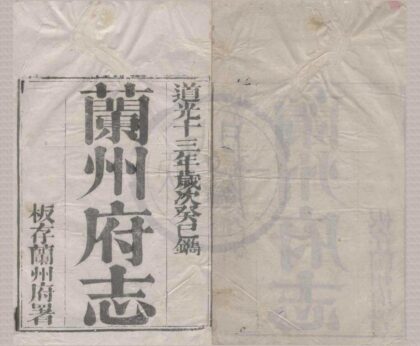 道光十三年歲次癸巳鐫
蘭州府志
板存蘭州府署